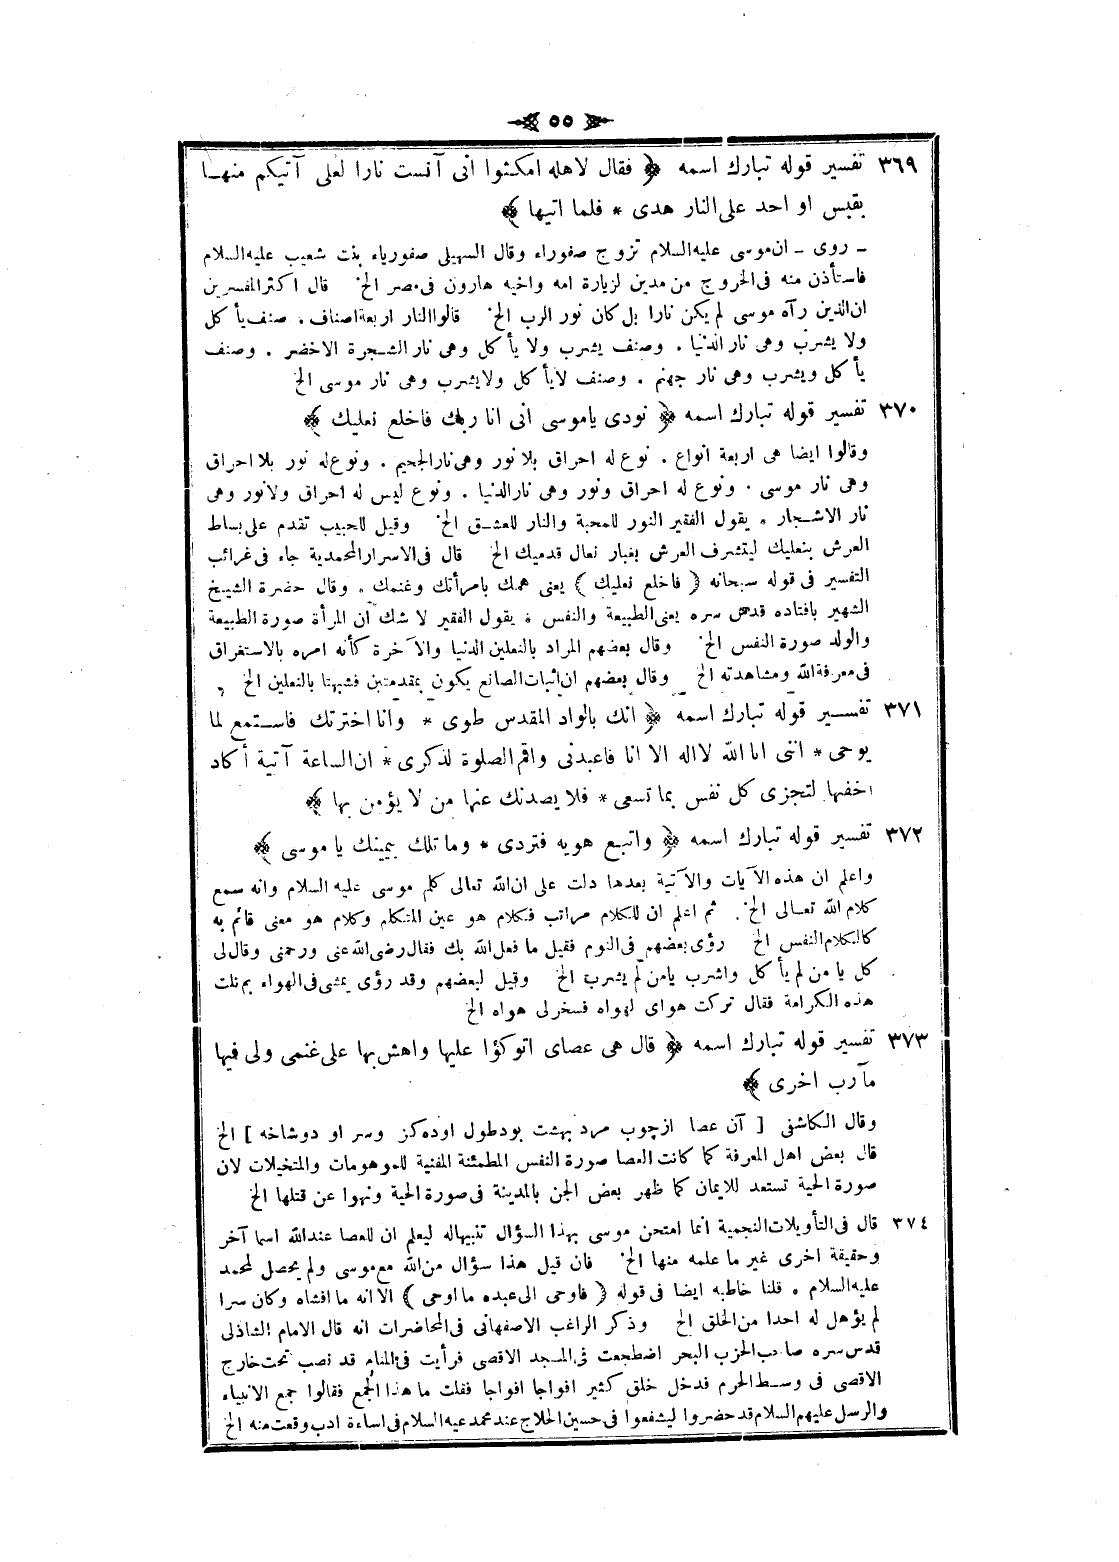 ٥٥
٣٦٩ تفسير قوله تبارك اسمه ﴿ فقال لاهله امكثوا انى آنست نارا لعلى آتيكم منهـا
بقبس او احد على النار هدى * فلما اتيها ﴾
ـ روى ـ ان موسى عليه السلام تزوج صفوراء وقال السهيلى صفورياء بنت شعيب عليه السلام
فاستأذن منه فى الخروج من مدين لزيارة امه واخيه هارون فى مصر الخ قال اكثر المفسرين
ان الذين رآه موسى لم يكن نارا بل كان نور الرب الخ قالوا النار اربعة اصناف . صنف يأكل
ولا يشرب وهى نار الدنيا . وصنف يشرب ولا يأكل وهى نار الشجرة الاخضر . وصنف
يأكل ويشرب وهى نار جهنم . وصنف لا يأكل ولا يشرب وهى نار موسى الخ
٣٧٠ تفسير قوله تبارك اسمه ﴿ نودى ياموسى انى انا ربك فاخلع نعليك ﴾
وقالوا ايضا هى اربعة انواع . نوع له احراق بلا نور وهى نار الجحيم . ونوع له نور بلا احراق
وهى نار موسى . ونوع له احراق ونور وهى نار الدنيا . ونوع ليس له احراق ولا نور وهى
نار الاشجار . يقول الفقير النور للمحبة والنار للعشق الخ وقيل للحبيب تقدم على بساط
العرش بنعليك ليتشرف العرش بغبار نعال قدميك الخ قال فى الاسرار المحمدية جاء فى غرائب
التفسير فى قوله سبحانه ( فاخلع نعليك ) يعنى همك بامرأتك وغنمك . وقال حضرة الشيخ
الشهير بافتاده قدس سره يعنى الطبيعة والنفس . يقول الفقير لا شك أن المرأة صورة الطبيعة
والولد صورة النفس الخ وقال بعضهم المراد بالنعلين الدنيا والآخرة كأنه امره بالاستغراق
فى معرفة الله ومشاهدته الخ وقال بعضهم ان اثبات الصانع يكون بمقدمتين فشبهتا بالنعلين الخ
٣٧١ تفسـير قوله تبارك اسمه ﴿ انك بالواد المقدس طوى * وانا اخترتك فاستمع لما
يوحى * اننى انا الله لا اله الا انا فاعبدنى واقم الصلوة لذكرى * ان الساعة آتية أكاد
اخفيها لتجزى كل نفس بما تسعى * فلا يصدنك عنها من لا يؤمن بها ﴾
٣٧٢ تفسير قوله تبارك اسمه ﴿ واتبع هويه فتردى * وما تلك بيمينك يا موسى ﴾
واعلم ان هذه الآيات والآتية بعدها دلت على ان الله تعالى كلم موسى عليه السلام وانه سمع
كلام الله تعـالى الخ . ثم اعلم ان للكلام مراتب فكلام هو عين المتكلم وكلام هو معنى قائم به
كالكلام النفس الخ رؤى بعضهم فى النوم فقيل ما فعل الله بك فقال رضى الله عنى ورحمنى وقال لى
كل يا من لم يأكل واشرب يا من لم يشرب الخ وقيل لبعضهم وقد رؤى يمشى فى الهواء بم نلت
هذه الكرامة فقال تركت هواى لهواه فسخر لى هواه الخ
٣٧٣ تفسير قوله تبارك اسمه ﴿ قال هى عصاى اتوكؤا عليها واهش بها على غنمى ولى فيها
مآرب اخرى ﴾
وقال الكاشفى [ آن عصا ازچوب مرد بهشت بود طول اوده كز وسر او دوشاخه ] الخ
قال بعض اهل المعرفة كما كانت العصا صورة النفس المطمئنة المفنية للموهومات والمتخيلات لان
صورة الحية تستعد للايمان كما ظهر بعض الجن بالمدينة فى صورة الحية ونهوا عن قتلها الخ
٣٧٤ قال فى التأويلات النجمية انما امتحن موسى بهذا السؤال تنبيها له ليعلم ان للعصا عند الله اسما آخر
وحقيقة اخرى غير ما علمه منها الخ فان قيل هذا سؤال من الله مع موسى ولم يحصل لمحمد
عليه السلام . قلنا خاطبه ايضا فى قوله ( فاوحى الى عبده ما اوحى ) الا انه ما افشاه وكان سرا
لم يؤهل له احدا من الخلق الخ وذكر الراغب الاصفهانى فى المحاضرات انه قال الامام الشاذلى
قدس سره صاحب الحزب البحر اضطجعت فى المسجد الاقصى فرأيت فى المنام قد نصب تحت خارج
الاقصى فى وسط الحرم فدخل خلق كثير افواجا افواجا فقلت ما هذا الجمع فقالوا جمع الانبياء
والرسل عليهم السلام قد حضروا ليشفعوا فى حسين الحلاج عند محمد عيه السلام فى اساءة ادب وقعت منه الخ